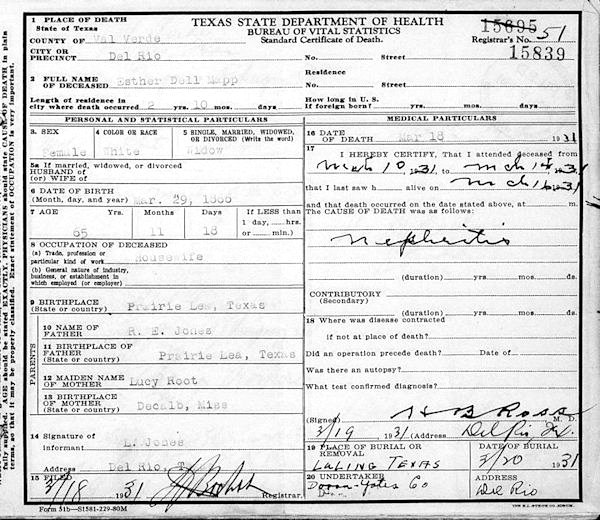 1 PLACE OF DEATH
State of Texas
TEXAS STATE DEPARTMENT OF HEALTH
BUREAU OF VITAL STATISTICS
Standard Certificate of Death.
15695
Registrar's No. 51
15839
COUNTY OF Val Verde
CITY OR
PRECINCT Del Rio No. Street No. Street
2 FULL NAME
OF DECEASED Esther Dell Mapp
Residence
Length of residence in
city where death occurred 2 yrs. 10 mos. days
How long in U. S.
if foreign born? yrs. mos. days
PERSONAL AND STATISTICAL PARTICULARS
3. SEX
Female
4 COLOR OR RACE
White
5 SINGLE, MARRIED, WIDOWED,
OR DIVORCED (Write the word)
Widow
5a If married, widowed, or divorced
HUSBAND of
(or) WIFE of
6 DATE OF BIRTH
(Month, day, and year) Mar. 29, 1866
7 AGE Yrs. Months Days If LESS than
65 11 18 1 day, hrs.
or min.)
8 OCCUPATION OF DECEASED
(a) Trade, profession or
particular kind of work Housewife
(b) General nature of industry,
business, or establishment in
which employed (or employer)
9 BIRTHPLACE Prairie Lea, Texas
(State or country)
PARENTS
10 NAME OF
FATHER R. E. Jones
11 BIRTHPLACE OF
FATHER Prairie Lea, Texas
(State or country)
12 MAIDEN NAME
OF MOTHER Lucy Root
13 BIRTHPLACE
OF MOTHER Decalb, Miss
(State or country)
14 Signature of
informant L. Jones
Address Del Rio, T
15 FILED 3/18 1931
MEDICAL PARTICULARS
16 DATE
OF DEATH Mar 18 1931
17
I HEREBY CERTIFY, That I attended deceased from
Mch 10 1931, to Mch 18 1931
that I last saw h alive on Mch 16 1931
and that death occurred on the date stated above, at m.
The CAUSE OF DEATH was as follows:
Nephritis
(duration) yrs. mos. ds.
CONTRIBUTORY
(Secondary)
(duration) yrs. mos. ds.
18 Where was disease contracted
if not at place of death?
Did an operation precede death? Date of
Was there an autopsy?
What test confirmed diagnosis?
(Signed) H B Ross M. D.
3/19 1931 (Address) Del Rio, Tx.
19 PLACE OF BURIAL OR
REMOVAL
Luling Texas
DATE OF BURIAL
3/20 1931
20 UNDERTAKER
Doran-Yates Co
ADDRESS
Del Rio
Form 51b—S1581-229-80M